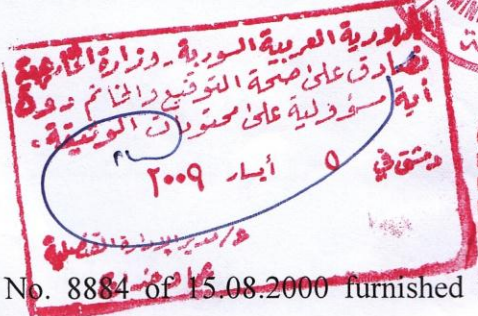 الجمهورية العربية السورية - وزارة الخارجية
نصادق على صحة التوقيع والخاتم دون
أية مسؤولية على محتويات الوثيقة .
دمشق في ٥ أيار ٢٠٠٩
مدير الإدارة القنصلية
No. 8884 of 15.08.2000 furnished